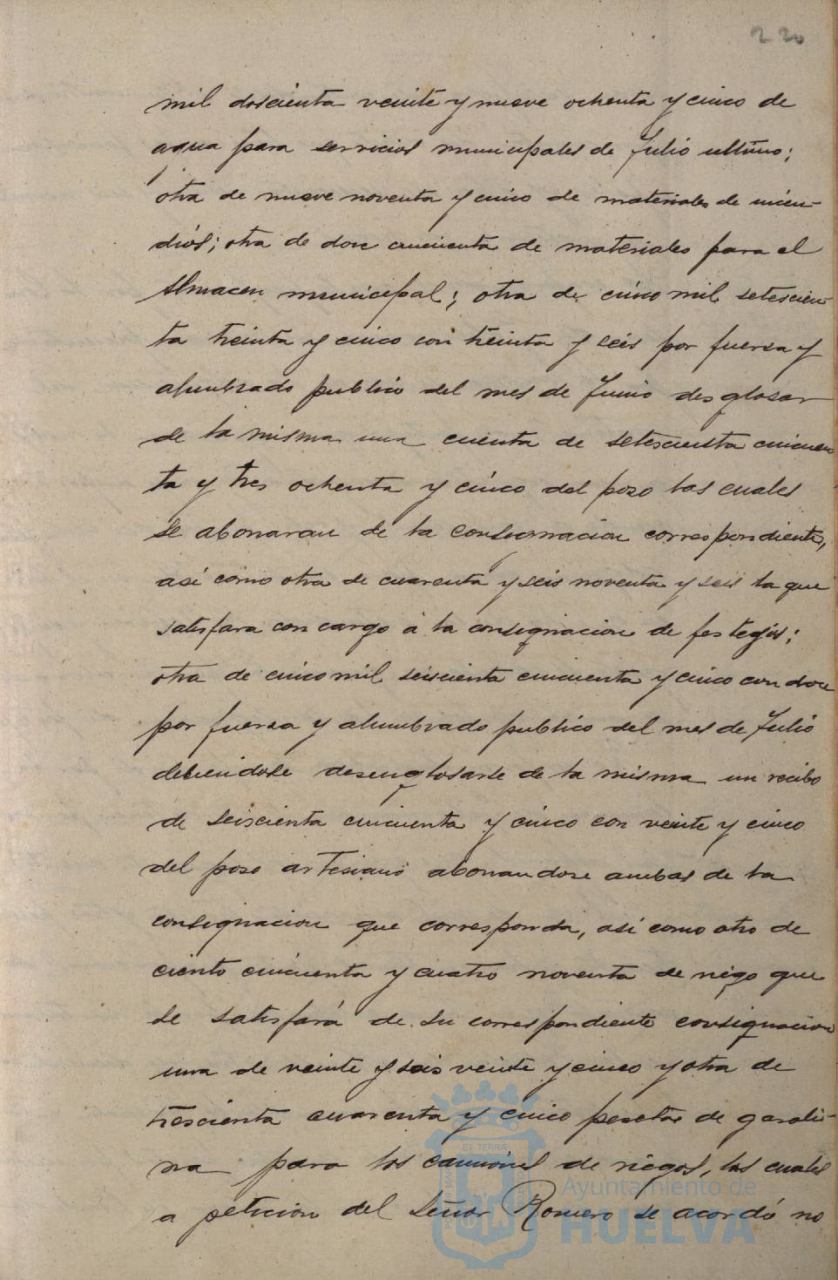 220
mil doscienta veinte y nueve ochenta y cinco de
agua para servicios municipales de Julio ultimo;
otra de nueve noventa y cinco de materiales de incen-
dios; otra de doce cincuenta de materiales para el
Almacen municipal; otra de cinco mil setescien-
ta treinta y cinco con treinta y seis por fuersa y
alumbrado publico del mes de Junio desglosar
de la misma una cuenta de setescienta cincuen
ta y tres ochenta y cinco del poso las cuales
se abonaran de la consignacion correspondiente,
asi como otra de cuarenta y seis noventa y seis la que
satisfara con cargo á la consignacion de festejos;
otra de cinco mil seiscienta cincuenta y cinco con doce
por fuersa y alumbrado publico del mes de Julio
debiendose desenglosarse de la misma un recibo
de seiscienta cincuenta y cinco con veinte y cinco
del poso artesiano abonandose ambas de la
consignacion que corresponda, asi como otro de
ciento cincuenta y cuatro noventa de riego que
se satisfará de su correspondiente consignacion
una de veinte y seis veinte y cinco y otra de
trescienta cuarenta y cinco pesetas de gasoli-
na para los camiones de riegos, las cuales
a peticion del Señor Romero se acordó no
Ayuntamiento de
HUELVA